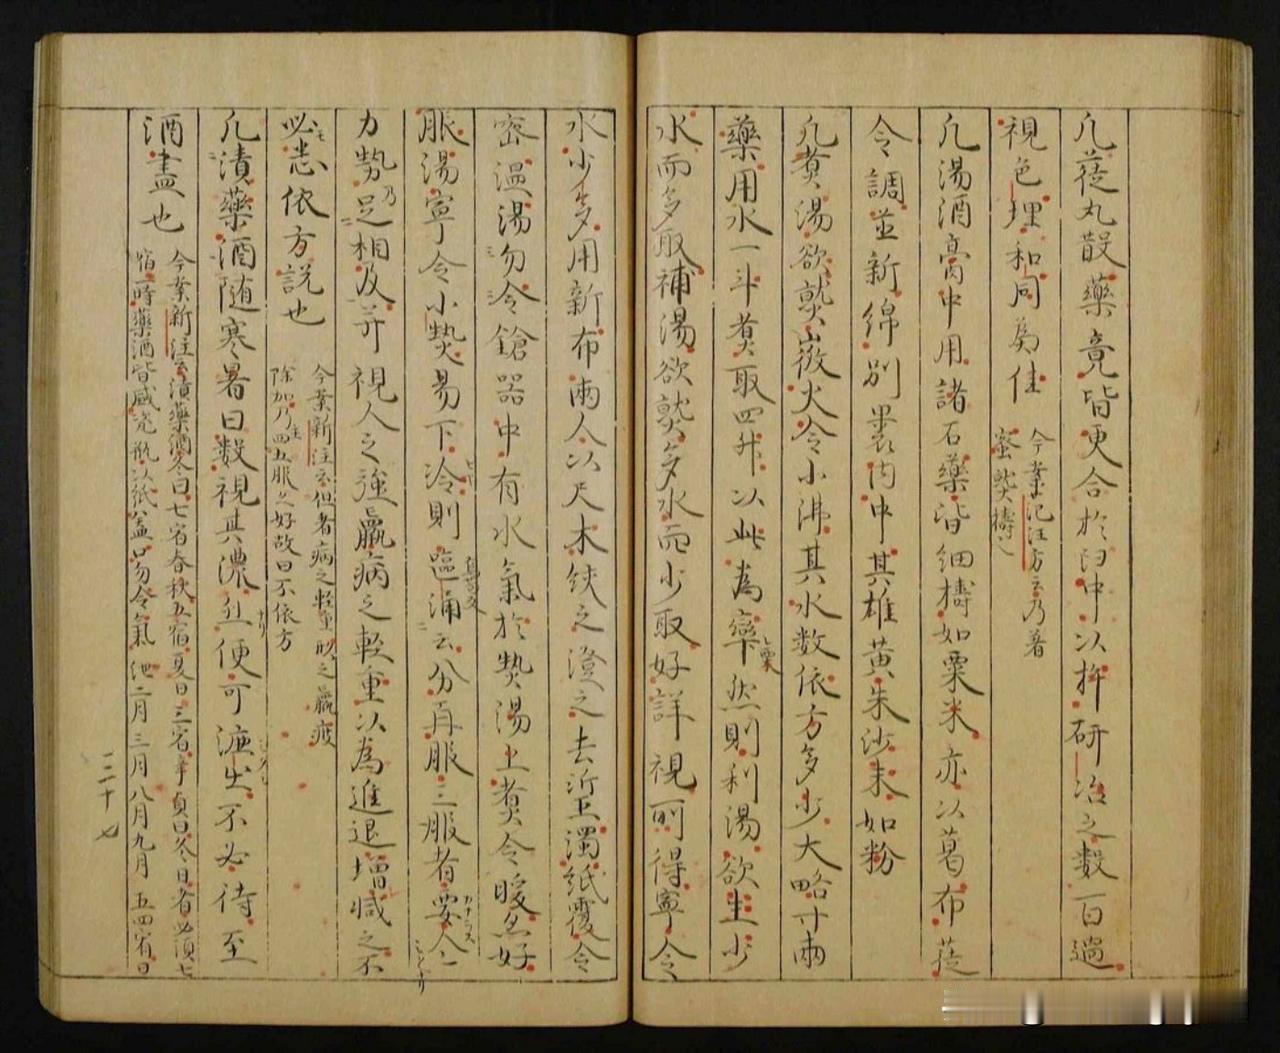 凡蓰丸散藥竟皆更合於臼中以杵研冶之數百遍
視色理和同為佳 今案范汪方云乃著
蜜㪍擣之
凡湯酒膏中用諸石藥皆細擣如粟米亦以葛布蓰
令調並新綿別裹內中其雄黃朱沙末如粉
凡煮湯欲熟微火令小沸其水數依方多少大略寸兩
藥用水一斗煮取四升以此為率然則利湯欲生少
水而多取補湯欲熟多水而少取好詳視所得寧令
水少多用新布兩人以尺木絞之澄之去濁紙覆令
密溫湯勿令鎗器中有水氣於熱湯上煮令暖然好
服湯寧令小熱易下冷則嘔涌云分再服三服者要令
力勢足相及并視人之強羸病之輕重以為進退增減之不
必悉依方說也 今案新注云但看病之輕重形之羸疲
除加乃四五服之好故曰不依方
凡漬藥酒隨寒暑日數視其濃烈便可漉出不必待至
酒盡也 今案新注云漬藥酒冬日七宿春秋五宿夏日三宿 冬日者必須七
宿一時藥酒皆盛瓷瓶以紙蓋口勿令氣泄二月三月八月九月五四宿日
三十七